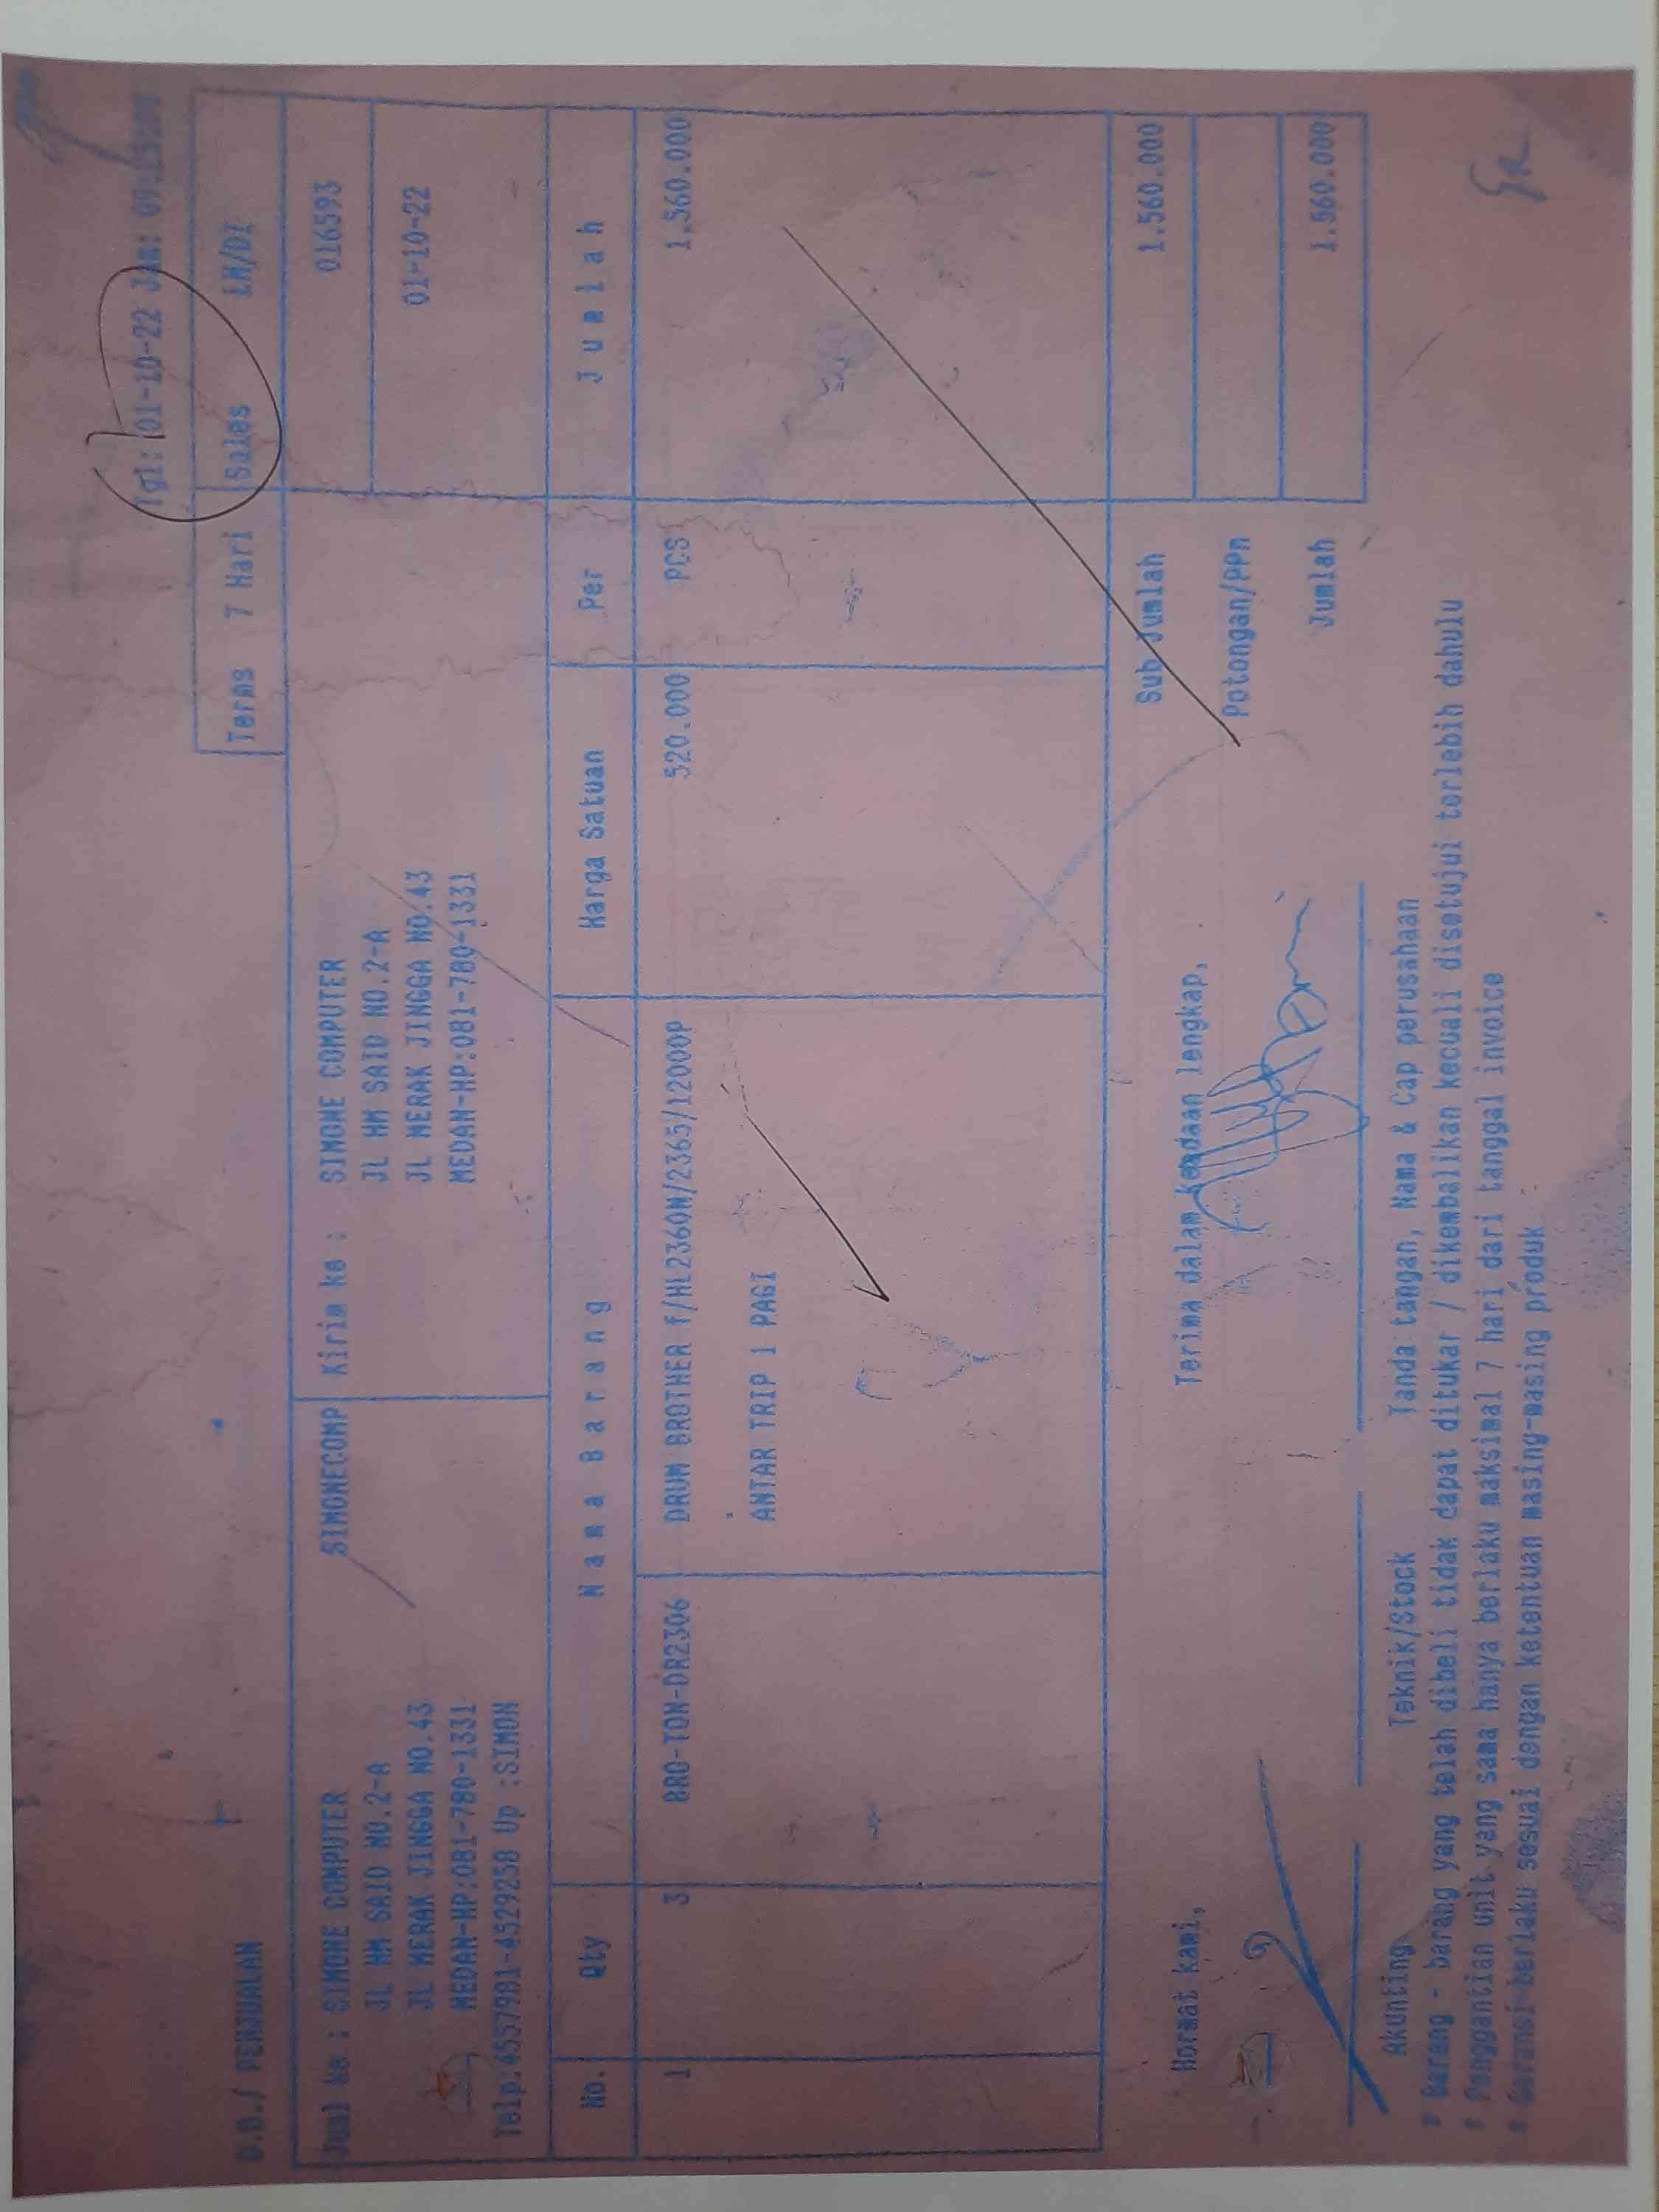 Tgl: 01-10-22 Jam: 09:
D.O./ PENJUALAN
Terms 7 Hari Sales LM/DI
Jual ke : SIMONE COMPUTER SIMONECOMP Kirim ke : SIMONE COMPUTER 016593
JL HM SAID NO.2-A JL HM SAID NO.2-A
JL MERAK JINGGA NO.43 JL MERAK JINGGA NO.43 01-10-22
MEDAN-HP:081-780-1331 MEDAN-HP:081-780-1331
Telp:4557981-4529258 Up :SIMON
No. Qty Nama Barang Harga Satuan Per Jumlah
1 3 BRO-TON-DR2306 DRUM BROTHER f/HL2360N/2365/12000P 520.000 PCS 1.560.000
ANTAR TRIP 1 PAGI
Hormat kami, Terima dalam keadaan lengkap, Sub Jumlah 1.560.000
Potongan/PPn
Jumlah 1.560.000
Akunting Teknik/Stock Tanda tangan, Nama & Cap perusahaan
* Barang - barang yang telah dibeli tidak dapat ditukar / dikembalikan kecuali disetujui terlebih dahulu
* Penggantian unit yang sama hanya berlaku maksimal 7 hari dari tanggal invoice
* Garansi berlaku sesuai dengan ketentuan masing-masing produk